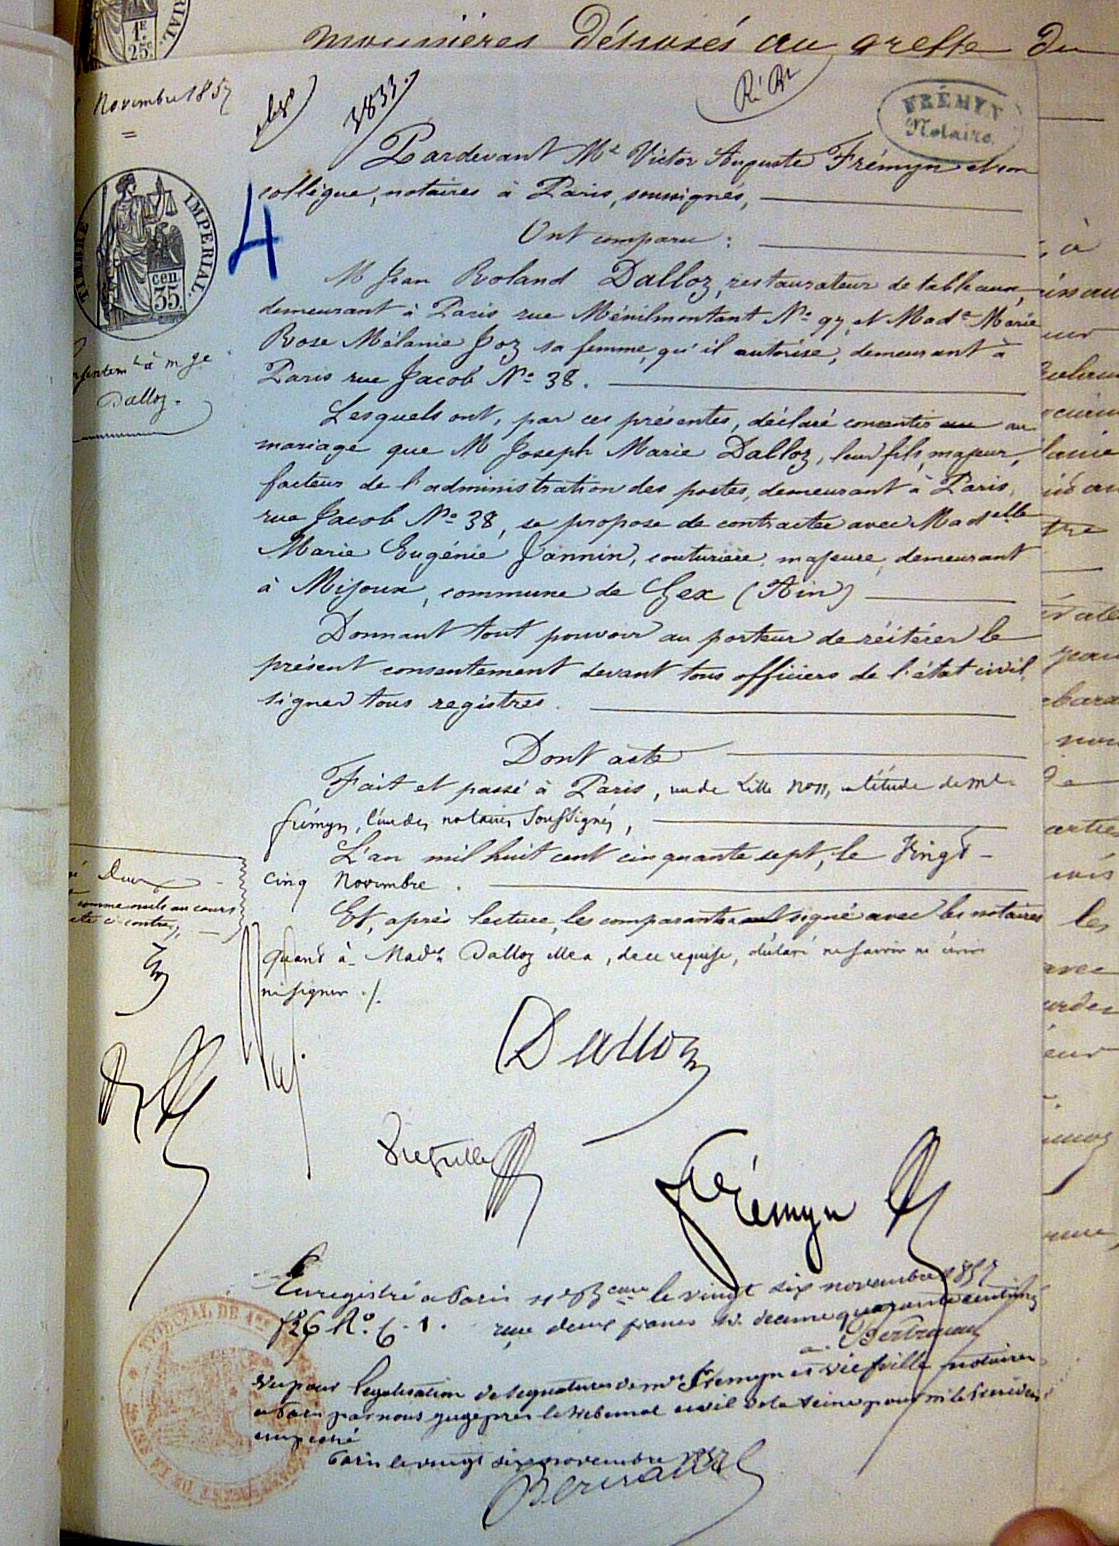 mounières déposés au greffe du
1E.
25c
Novembre 1857
3833.
FRÉMYN
Notaire
Pardevant Me Victor Auguste Frémyn et son
collègue, notaires à Paris, soussignés,
4
Ont comparu :
TIMBRE IMPERIAL
cen
35
M Jean Roland Dalloz, restaurateur de tableaux,
demeurant à Paris rue Ménilmontant No 97, et Made Marie
Rose Mélanie Joz sa femme, qu'il autorise, demeurant à
Paris rue Jacob No 38.
à m. ge.
Dalloz.
Lesquels ont, par ces présentes, déclaré consentir au
mariage que M Joseph Marie Dalloz, leur fils, majeur,
facteur de l'administration des postes, demeurant à Paris,
rue Jacob No 38, se propose de contracter avec Madelle
Marie Eugénie Jannin, couturière, majeure, demeurant
à Mijoux, commune de Gex (Ain)
Donnant tout pouvoir au porteur de réitérer le
présent consentement devant tous officiers de l'état civil,
signer tous registres.
Dont acte
Fait et passé à Paris, rue de Lille No 11, en l'étude de Me
Frémyn, l'un des notaires soussignés,
L'an mil huit cent cinquante sept, le Vingt-
cinq Novembre.
Et, après lecture, les comparants signé avec les notaires
quant à Made Dalloz elle a, de ce requise, déclaré ne savoir ni écrire
ni signer ./.
comme nuls au cours
ci contre,
Dalloz
Viefville
Frémyn
Enregistré à Paris le vingt six novembre 1857
fo 26 Ro. C. 1. reçu deux francs de décime quarante centimes
Bertrand
Vu pour légalisation de signatures de Mes Frémyn et Viefville notaires
à Paris par nous juge près le tribunal civil de la Seine pour M le Président
empêché
Paris le vingt six novembre 1857